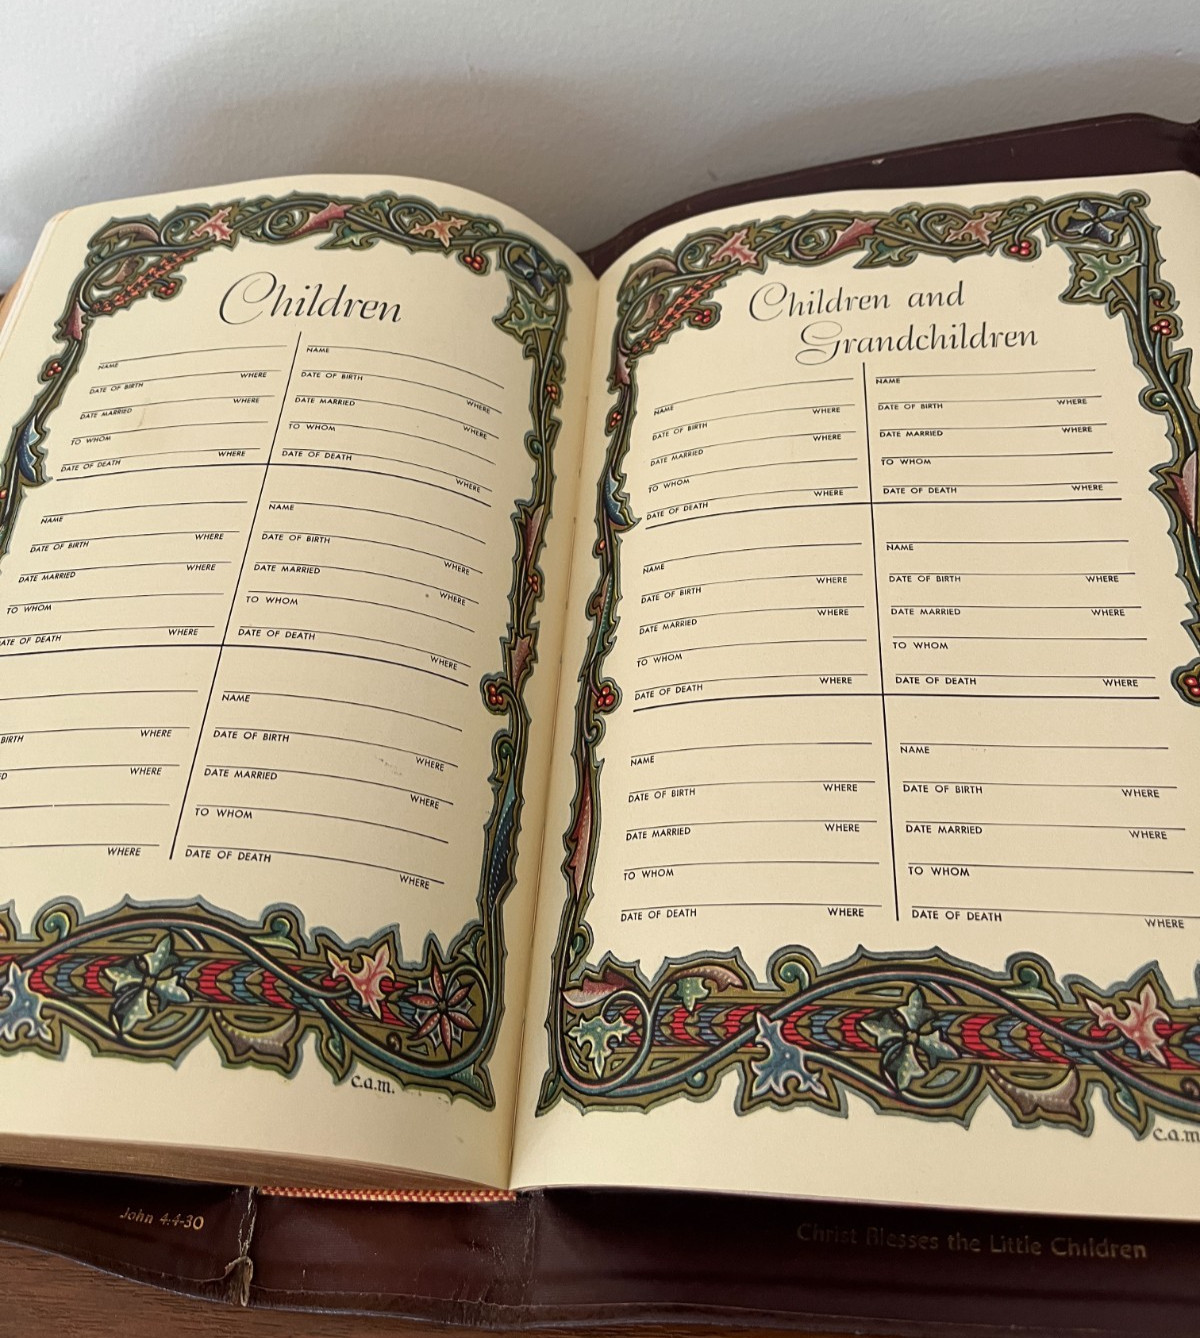 Children
NAME
DATE OF BIRTH WHERE
DATE MARRIED WHERE
TO WHOM
DATE OF DEATH WHERE
NAME
DATE OF BIRTH WHERE
DATE MARRIED WHERE
TO WHOM
DATE OF DEATH WHERE
BIRTH WHERE
D WHERE
WHERE
NAME
DATE OF BIRTH
WHERE
DATE MARRIED
WHERE
TO WHOM
DATE OF DEATH
WHERE
NAME
DATE OF BIRTH
WHERE
DATE MARRIED
WHERE
TO WHOM
DATE OF DEATH
WHERE
NAME
DATE OF BIRTH
WHERE
DATE MARRIED
WHERE
TO WHOM
DATE OF DEATH
WHERE
c.a.m.
Children and
Grandchildren
NAME
DATE OF BIRTH WHERE
DATE MARRIED WHERE
TO WHOM
DATE OF DEATH WHERE
NAME
DATE OF BIRTH WHERE
DATE MARRIED WHERE
TO WHOM
DATE OF DEATH WHERE
NAME
DATE OF BIRTH WHERE
DATE MARRIED WHERE
TO WHOM
DATE OF DEATH WHERE
NAME
DATE OF BIRTH WHERE
DATE MARRIED WHERE
TO WHOM
DATE OF DEATH WHERE
NAME
DATE OF BIRTH WHERE
DATE MARRIED WHERE
TO WHOM
DATE OF DEATH WHERE
NAME
DATE OF BIRTH WHERE
DATE MARRIED WHERE
TO WHOM
DATE OF DEATH WHERE
c.a.m
John 4:4-30
Christ Blesses the Little Children